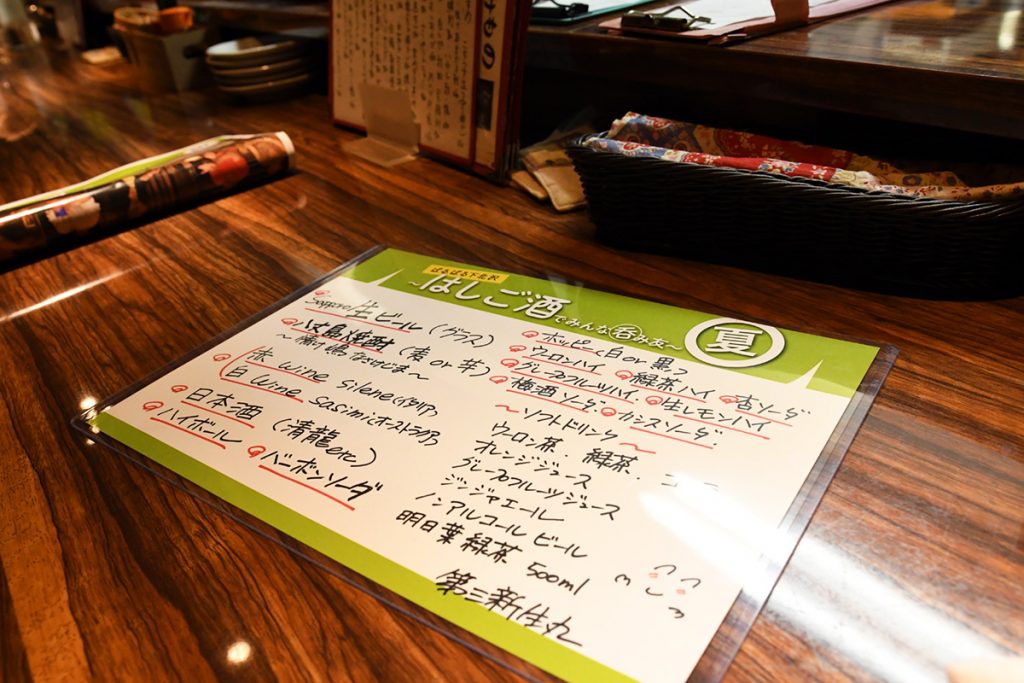 ぱるぱる下北沢
～はしご酒でみんな呑み友～
夏
Sapporo 生ビール (グラス)
八丈島焼酎 (麦 or 芋)
～ 情け嶋 なさけじま ～
赤 Wine Silene (イタリア)
白 Wine Sasimi (オーストラリア)
日本酒 (清龍 etc)
ハイボール
バーボンソーダ
ホッピー <白 or 黒>
ウーロンハイ 緑茶ハイ 杏ソーダ
グレープフルーツハイ 生レモンハイ
梅酒ソーダ カシスソーダ
～ ソフトドリンク ～
ウーロン茶・緑茶・コーラ
オレンジジュース
グレープフルーツジュース
ジンジャエール
ノンアルコール ビール
明日葉緑茶 500ml
第三新生丸